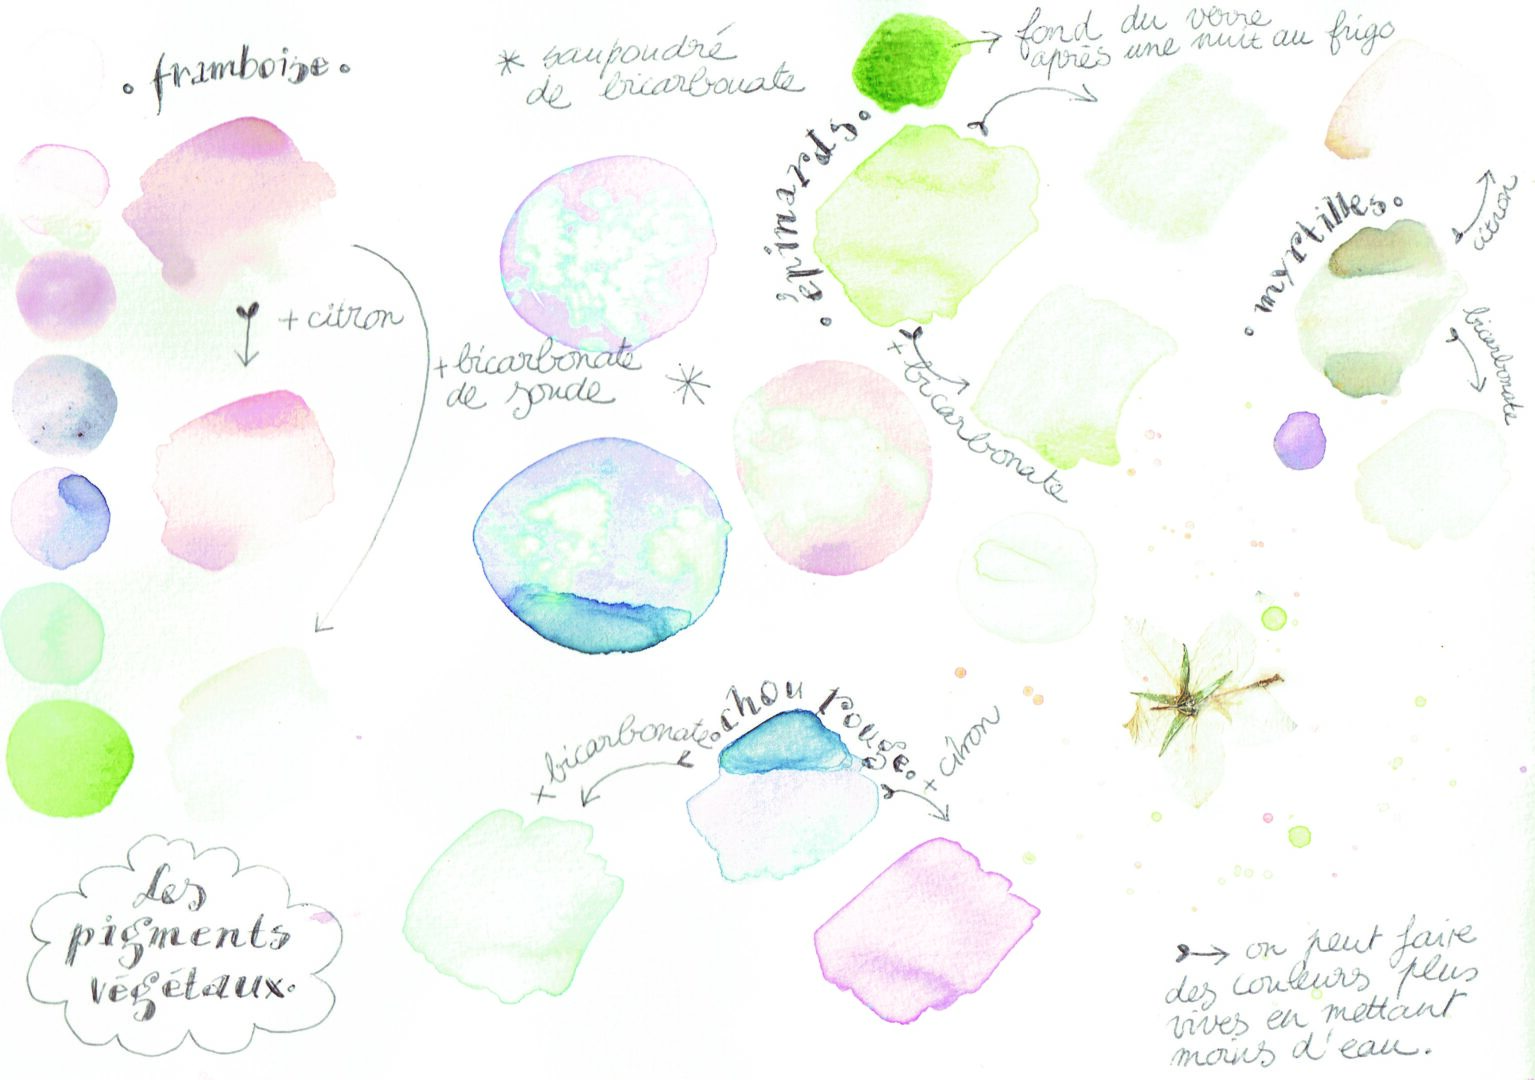 . framboise.
* saupoudré
de bicarbonate
fond du verre
après une nuit au frigo
. épinards.
+ citron
+ bicarbonate
de soude *
+ bicarbonate
. myrtilles.
citron
bicarbonate
. chou rouge.
+ bicarbonate
+ citron
Les
pigments
végétaux.
on peut faire
des couleurs plus
vives en mettant
moins d'eau.